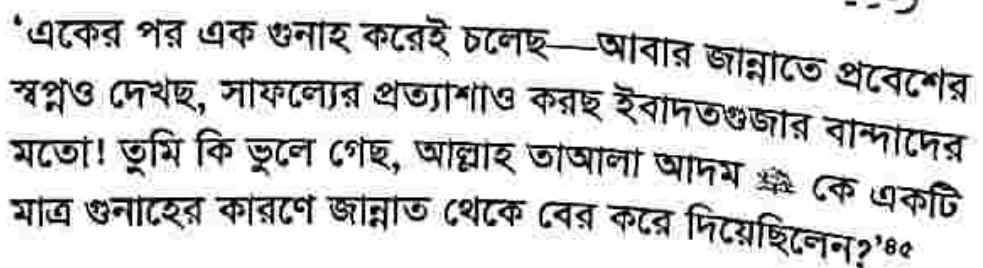 ‘একের পর এক গুনাহ করেই চলেছ—আবার জান্নাতে প্রবেশের
স্বপ্নও দেখছ, সাফল্যের প্রত্যাশাও করছ ইবাদতগুজার বান্দাদের
মতো! তুমি কি ভুলে গেছ, আল্লাহ তাআলা আদম কে একটি
মাত্র গুনাহের কারণে জান্নাত থেকে বের করে দিয়েছিলেন?’৪৫